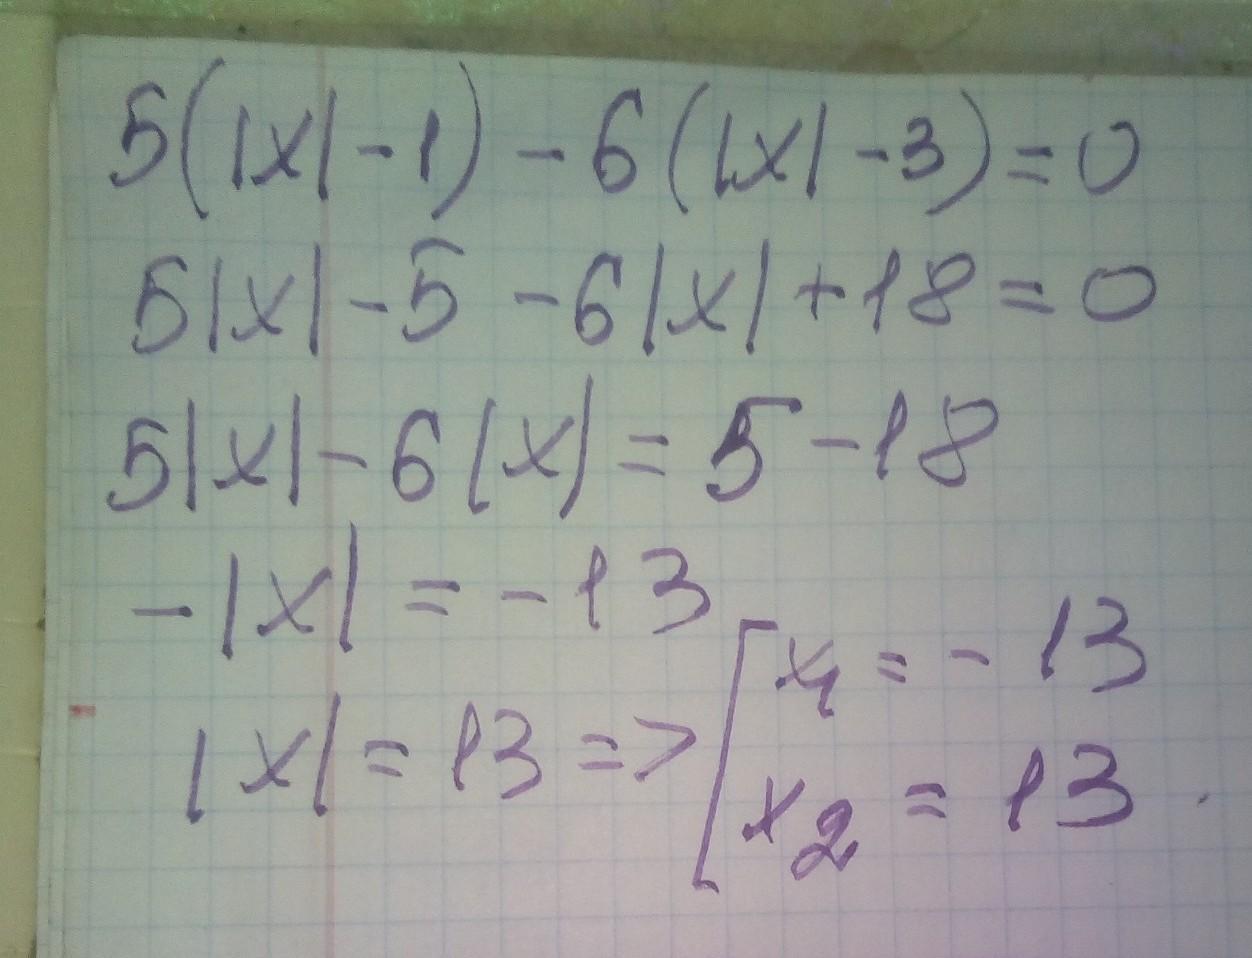 5(|x|-1)-6(|x|-3)=0
5|x|-5-6|x|+18=0
5|x|-6|x|=5-18
-|x|=-13
|x|=13=>[x1=-13
x2=13.